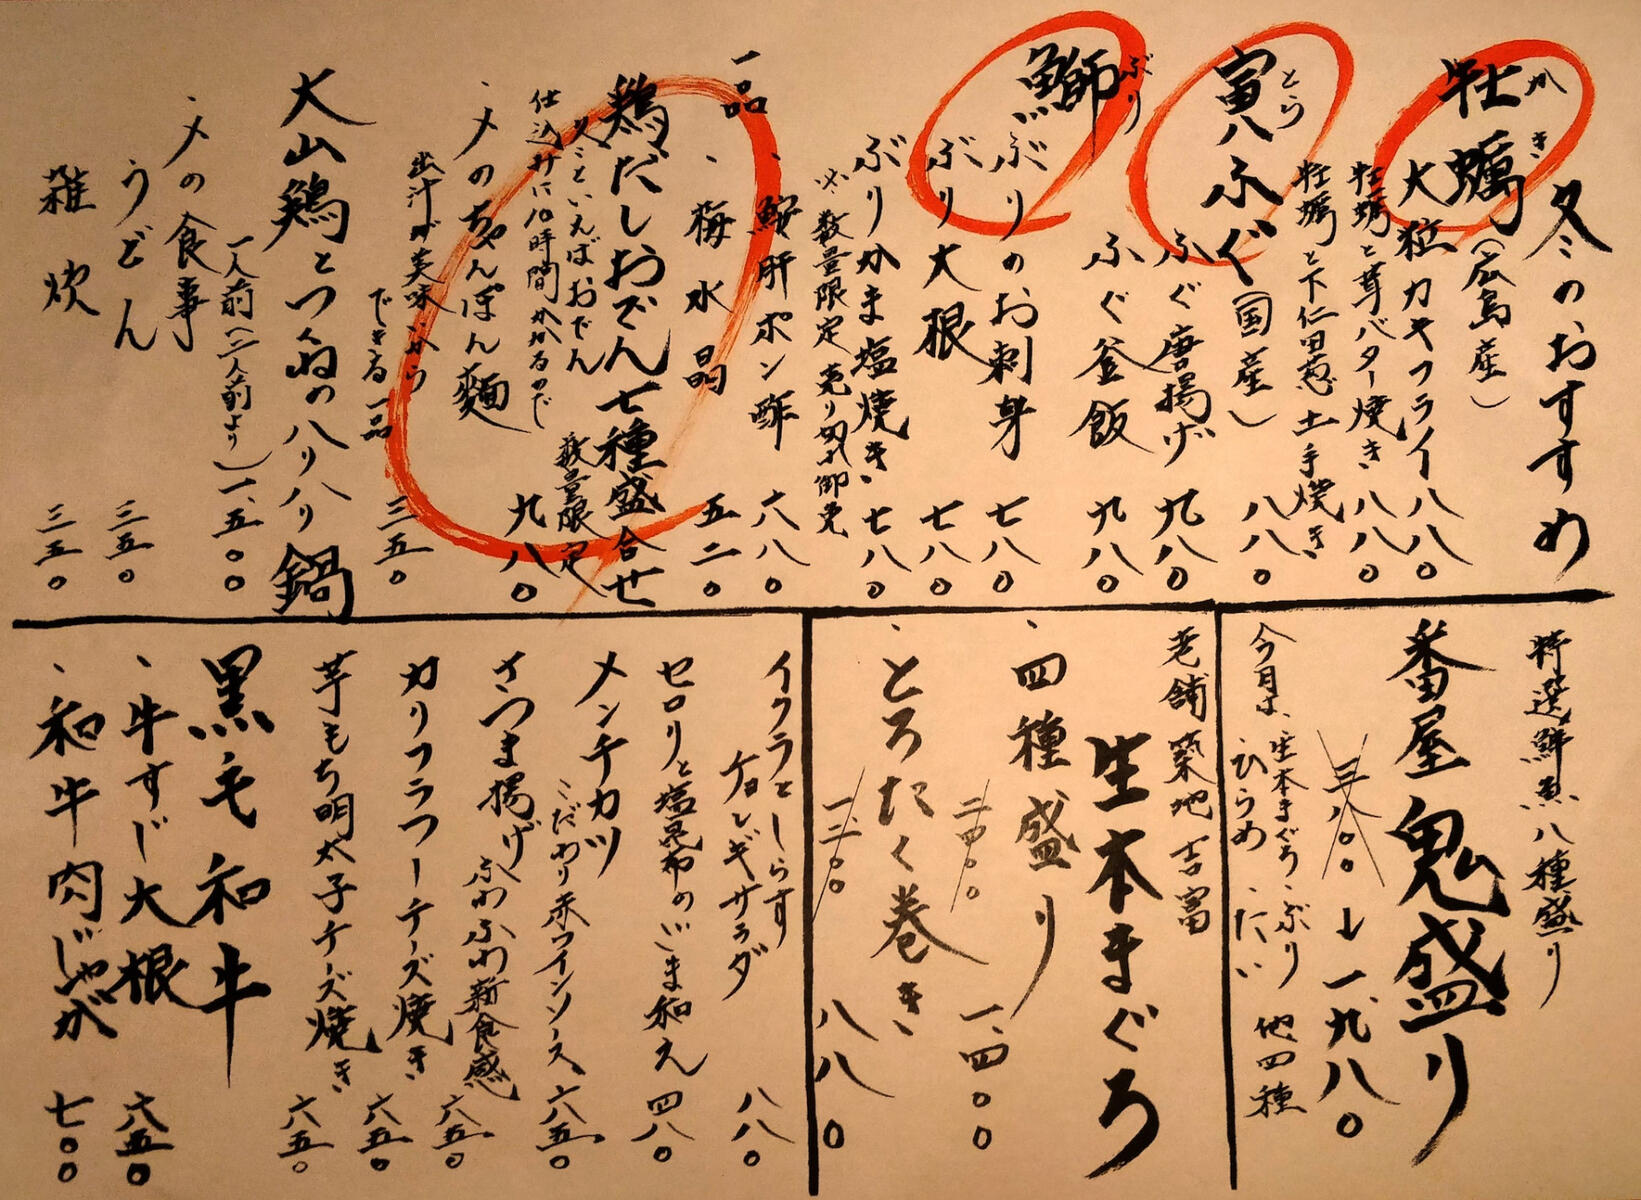 冬のおすすめ
牡蠣（広島産）
かき
大粒カキフライ 八八〇
牡蠣と茸バター焼き 八八〇
牡蠣と下仁田葱土手焼き 八八〇
寅ふぐ（国産）
とら
ふぐ唐揚げ 九八〇
ふぐ釜飯 九八〇
鰤
ぶり
ぶりのお刺身 七八〇
ぶり大根 七八〇
ぶりかま塩焼き 七八〇
※数量限定 売り切れ御免
一品
、鮟肝ポン酢 六八〇
、梅水晶 五二〇
鶏だしおでん七種盛合せ
冬といえばおでん
仕込みに10時間かかるので
数量限定 九八〇
、〆のちゃんぽん麺
出汁が美味いから
できる一品 三五〇
大山鶏とつくねのハリハリ鍋
一人前（二人前より）一、五〇〇
、〆の食事
うどん 三五〇
雑炊 三五〇
特選鮮魚八種盛り
番屋鬼盛り
三八〇〇→一、九八〇
今月は、生本まぐろ、ぶり
ひらめ、たい 他四種
老舗築地吉富
生本まぐろ
、四種盛り
二四〇〇 一、四〇〇
、とろたく巻き
一二〇〇 八八〇
イクラとしらす
チョレギサラダ 八八〇
セロリと塩昆布のごま和え 四八〇
メンチカツ
こだわり赤ワインソース 六八〇
さつま揚げ ふわふわ新食感 六五〇
カリフラワーチーズ焼き 六五〇
芋もち明太子チーズ焼き 六五〇
黒毛和牛
、牛すじ大根 六五〇
、和牛肉じゃが 七〇〇